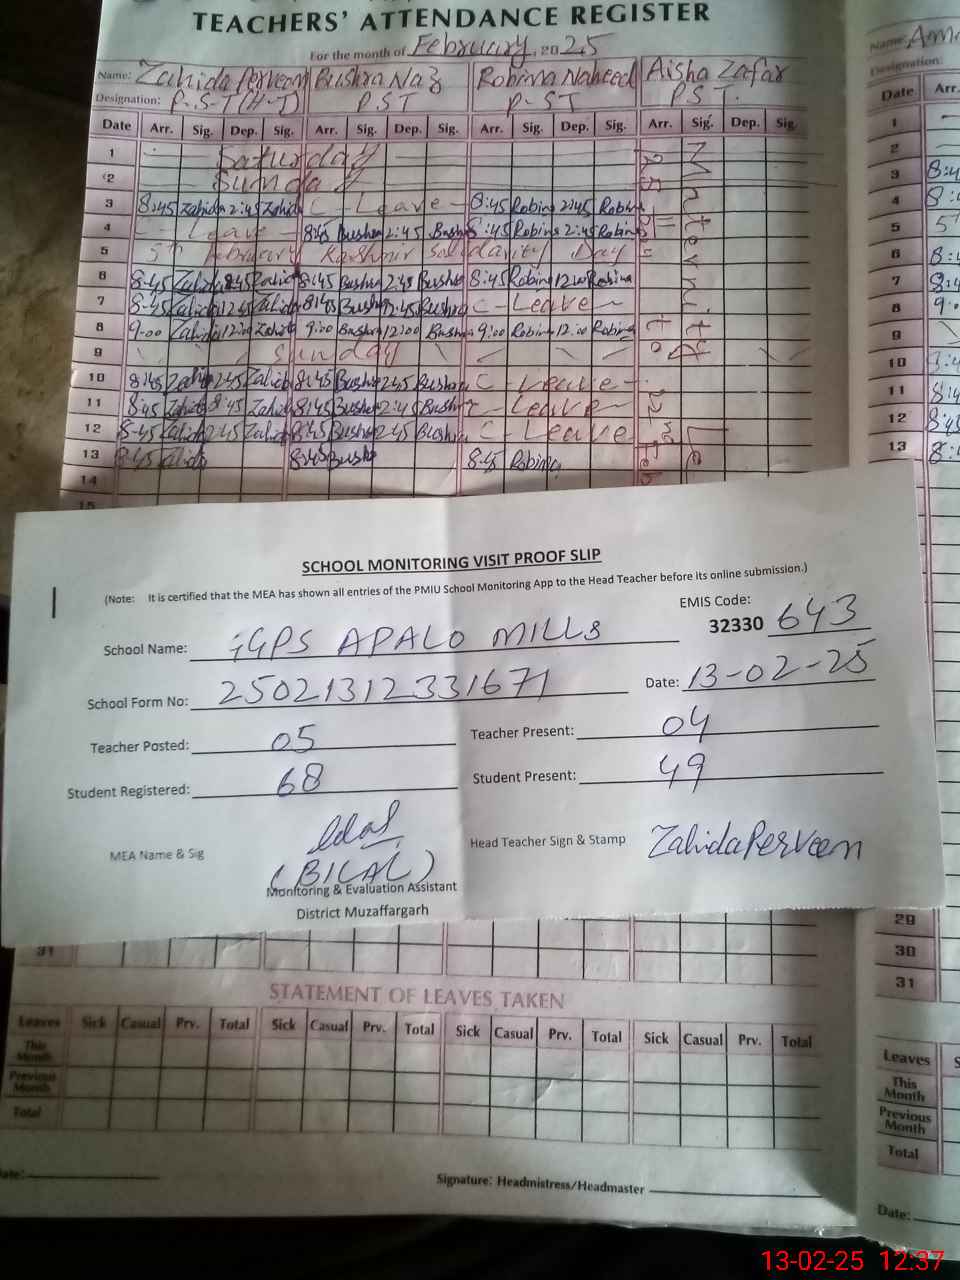 TEACHERS' ATTENDANCE REGISTER
For the month of February, 2025
Name: Zahida Perveen Bushra Naz Robina Naheed Aisha Zafar
Designation: P.S.T (H.T) PST P-ST PST.
Date Arr. Sig. Dep. Sig. Arr. Sig. Dep. Sig. Arr. Sig. Dep. Sig. Arr. Sig. Dep. Sig.
1 Saturday
2 Sunday
3 8:45 Zahida 2:45 Zahida C-Leave- 8:45 Robina 2:45 Robina
4 C-Leave- 8:45 Bushra 2:45 Bushra 8:45 Robina 2:45 Robina
5 5th February Kashmir Solidarity Day
6 8:45 Zahida 2:45 Zahida 8:45 Bushra 2:45 Bushra 8:45 Robina 12:00 Robina
7 8:45 Zahida 12:45 Zahida 8:45 Bushra 12:45 Bushra C-Leave-
8 9:00 Zahida 12:00 Zahida 9:00 Bushra 12:00 Bushra 9:00 Robina 12:00 Robina
9 Sunday
10 8:45 Zahida 2:45 Zahida 8:45 Bushra 2:45 Bushra C-Leave-
11 8:45 Zahida 2:45 Zahida 8:45 Bushra 2:45 Bushra C-Leave-
12 8:45 Zahida 2:45 Zahida 8:45 Bushra 2:45 Bushra C-Leave
13 8:45 Zahida 8:45 Bushra 8:45 Robina
14
15
Maternity
SCHOOL MONITORING VISIT PROOF SLIP
(Note: It is certified that the MEA has shown all entries of the PMIU School Monitoring App to the Head Teacher before its online submission.)
EMIS Code:
School Name: GGPS APALO MILLS 32330 643
School Form No: 25021312331671 Date: 13-02-25
Teacher Posted: 05 Teacher Present: 04
Student Registered: 68 Student Present: 49
MEA Name & Sig (BILAL) Head Teacher Sign & Stamp Zahida Perveen
Monitoring & Evaluation Assistant
District Muzaffargarh
29
30
31 31
STATEMENT OF LEAVES TAKEN
Leaves Sick Casual Prv. Total Sick Casual Prv. Total Sick Casual Prv. Total Sick Casual Prv. Total
This Month
Previous Month
Total
Date: Signature: Headmistress/Headmaster
Name:
Designation:
Date Arr.
1
2
3 8:4
4 8:
5 5
6 8:
7 8:4
8 9:
9
10
11 8:4
12 8:45
13 8:
Leaves S
This Month
Previous Month
Total
Date:
13-02-25 12:37